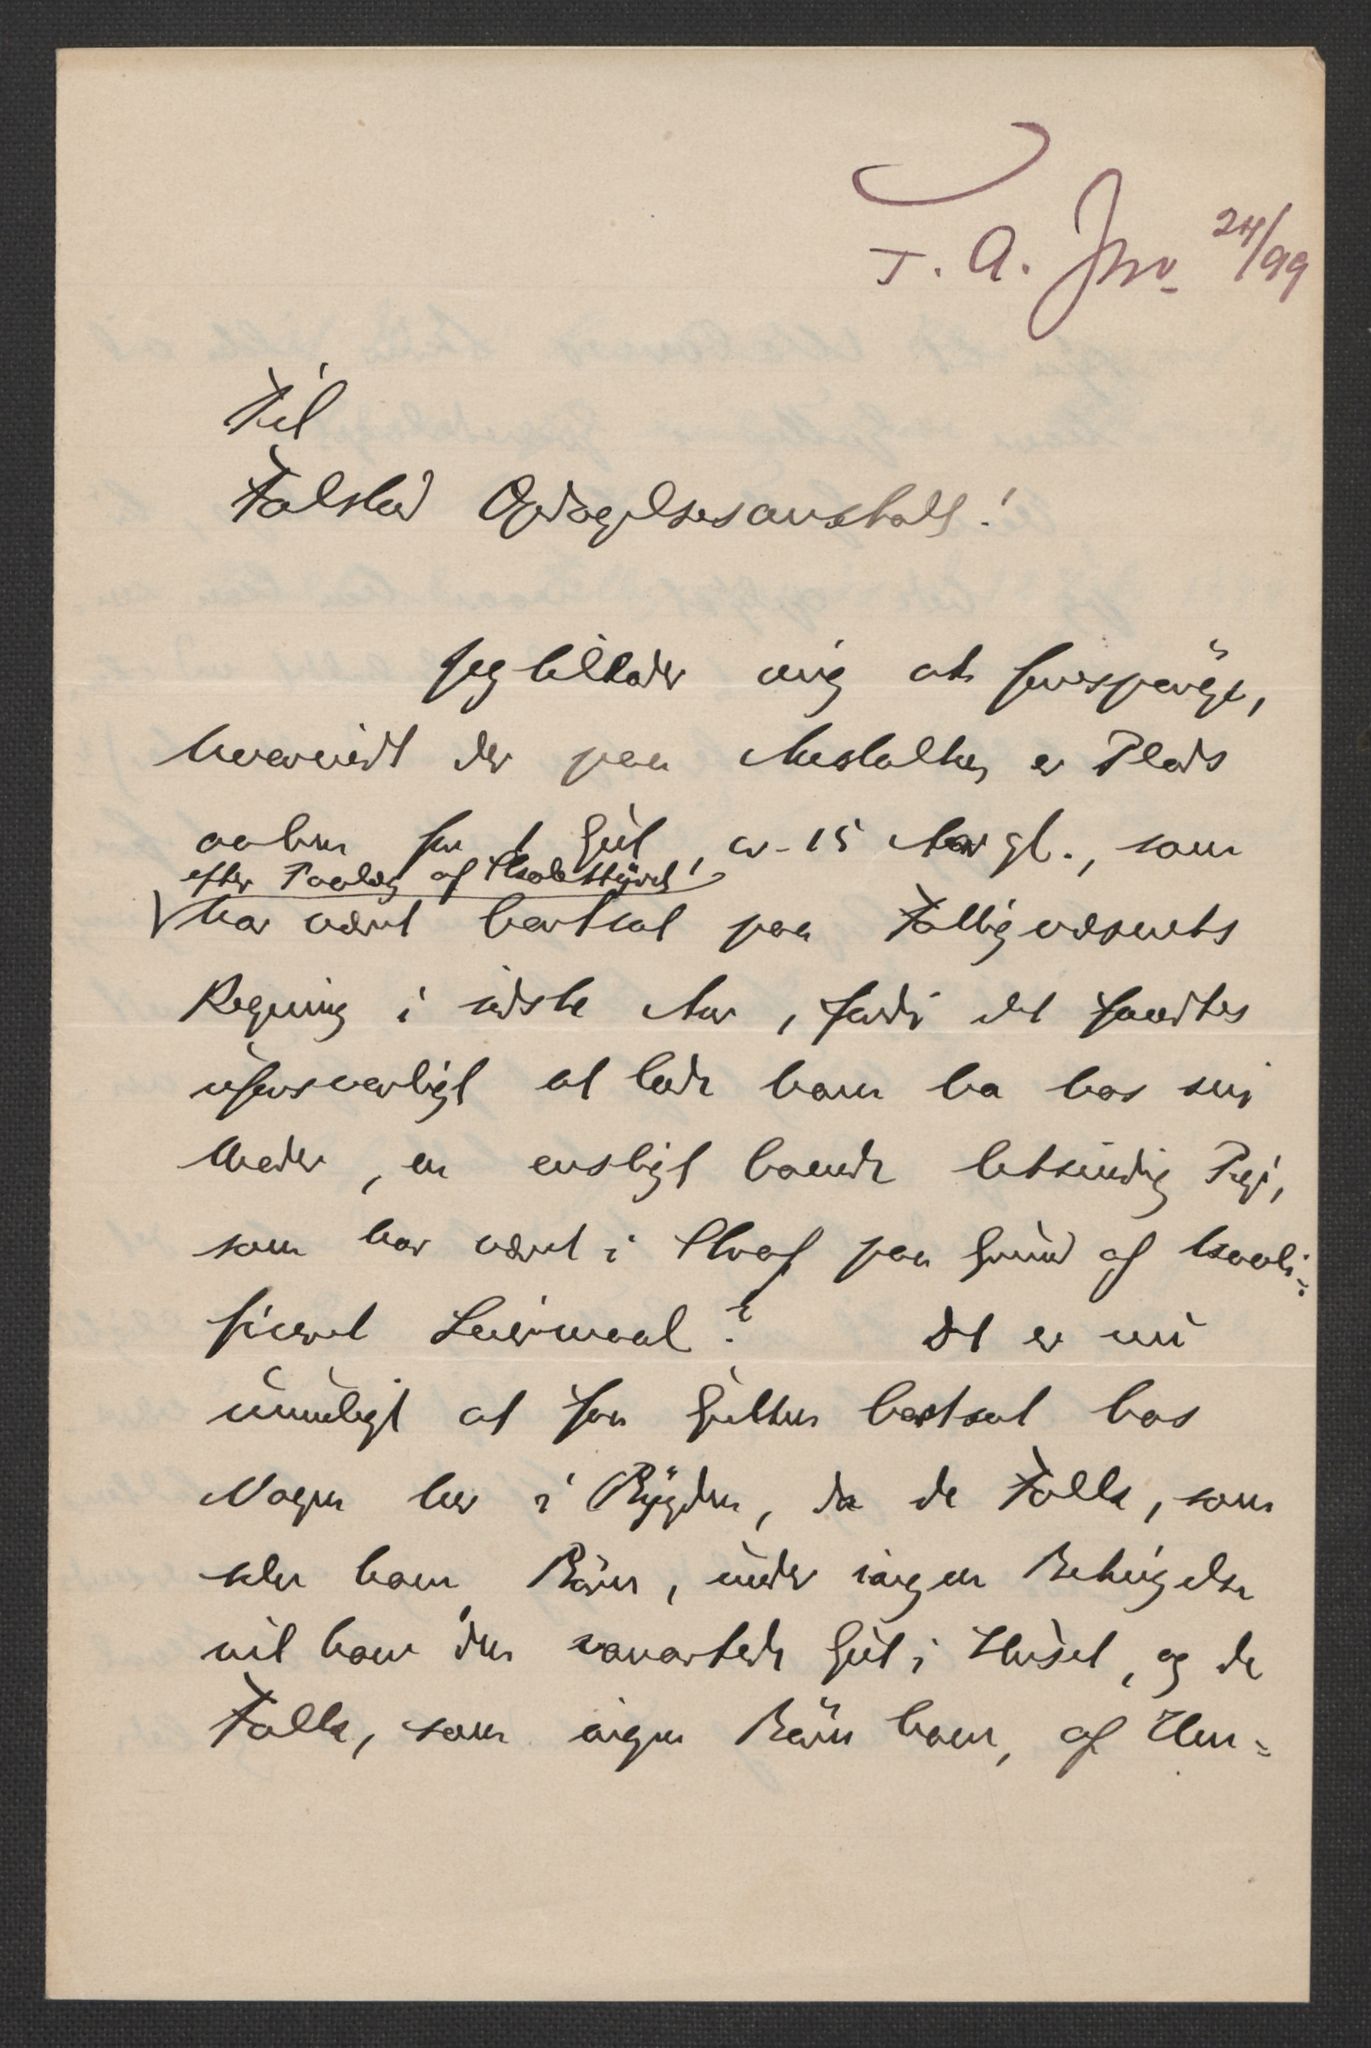 T. A. Jno 24/99
Til
Falstad Opdragelsesanstalt!
Jeg tillader mig at forespörge,
hvorvidt der paa Anstalten er Plads
aaben for 1 Gut, ca 15 Aar gl., som
efter Paalæg af Skolestyret
har været bortsat paa Fattigvæsenets
Regning i sidste Aar, fordi det fandtes
uforsvarligt at lade ham bo hos sin
Moder, en ensligt boende letsindig Pige,
som har været i Straf paa Grund af kvali-
ficeret Leiermaal? Det er nu
umuligt at faa Gutten bortsat hos
Nogen her i Bygden, da de Folk, som
selv have Börn, under ingen Betingelse
vil have den vanartede Gut i Huset, og de
Folk, som ingen Börn have, af Hen-